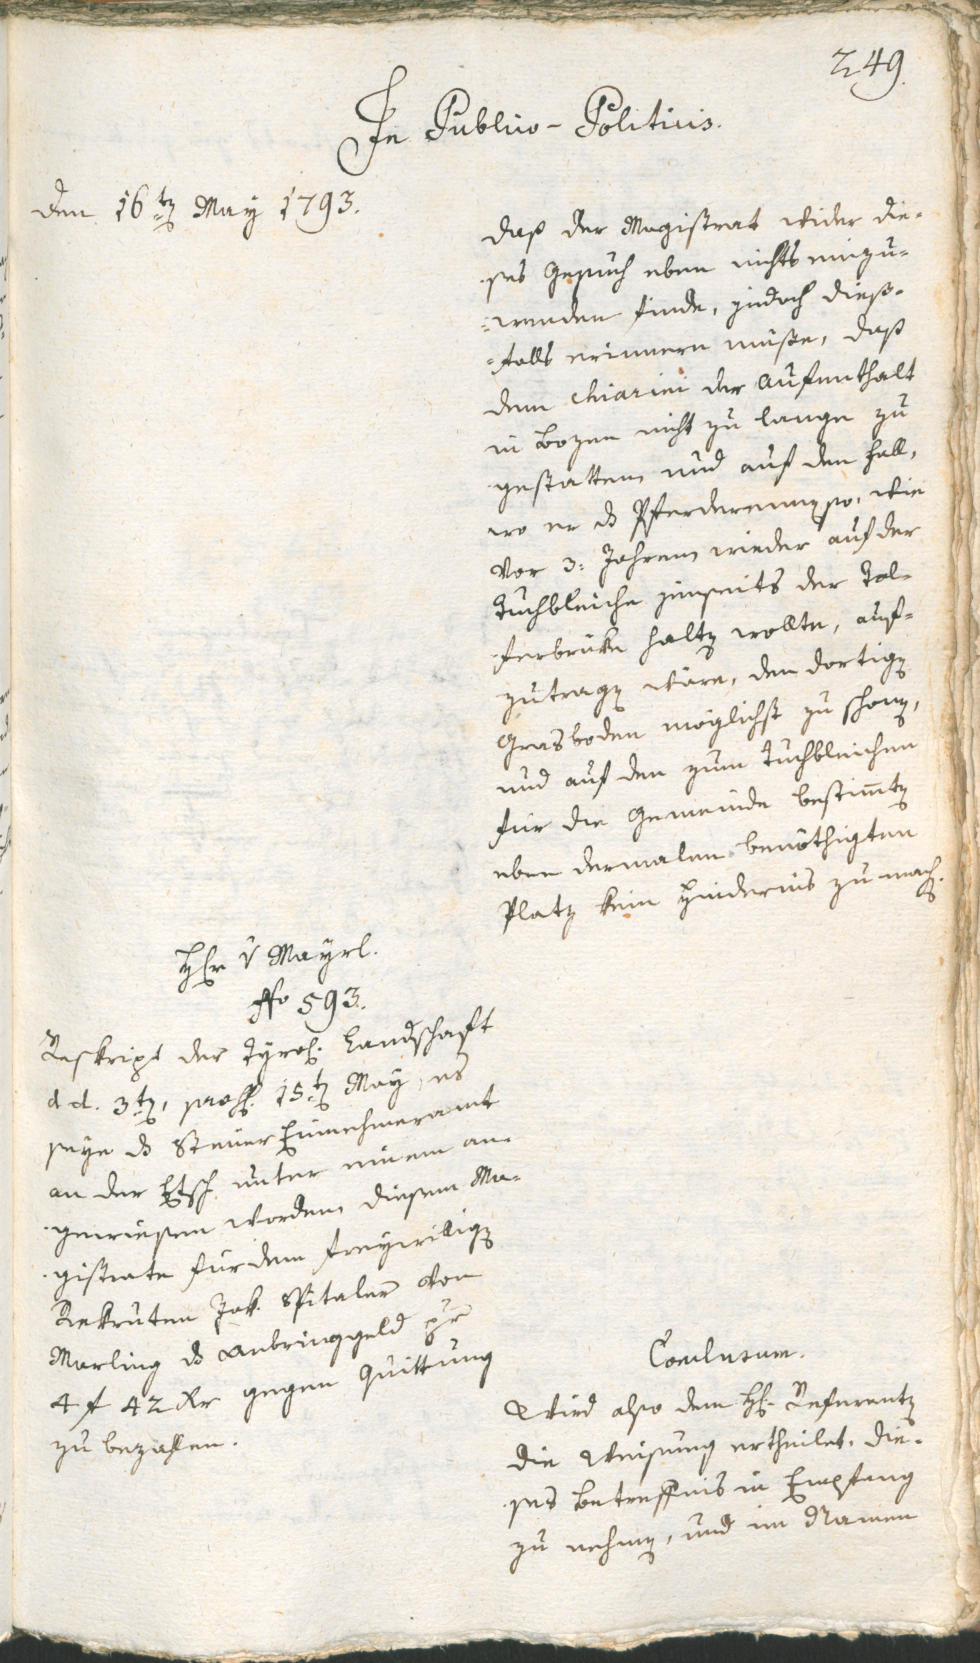 249.
In Publico-Politicis.
den 16tn May 1793.
daß der Magistrat wider die-
ses Gesuch eben nichts einzu-
wenden finde, jedoch dieß-
falls erinnern müße, daß
dem Chiarini der Aufenthalt
in Bozen nicht zu lange zu
gestatten, und auf den Fall,
wo er ds Pferderennen, wie
vor 3: Jahren wieder auf der
Tuchbleiche jenseits der Tal-
ferbruke haltn wollte, auf-
zutragn wäre, den dortign
Grasboden möglichst zu schonn,
und auf den zum Tuchbleichen
für die Gemeinde bestimtn
eben dermalen benöthigten
Platz kein Hindernis zu mach.
Hr v Mayrl.
No 593.
Reskript der Tyrol. Landschaft
d d. 3tn, pras. 15tn May, es
seye ds Steuer Einnehmeramt
an der Etsch unter einem an-
gewiesen worden diesem Ma-
gistrate für dem freywillign
Rekruten Jak. Spitaler von
Marling ds Anbringgeld pr
4 f 42 Kr gegen Quittung
zu bezalen.
Conclusum.
Wird also dem H. Referentn
die Weisung ertheilet, die-
ses Betreffnis in Empfang
zu nehmn, und im Namen